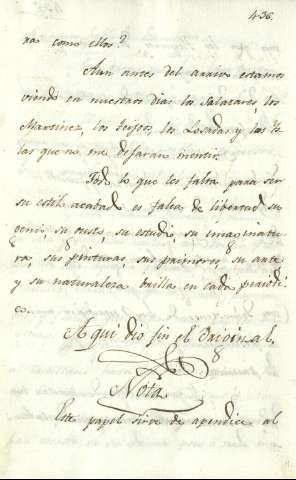 436.
ras como ellos?
Aun antes del arrivo estamos
viendo en nuestros dias los Salazares, los
Martinez, los Feijoos, los Losadas y las
las que no me dejaran mentir.
Todo lo que les falta para ser
su estilo acabado es falta de libertad su
genio, su gusto, su estudio, su imaginati-
va, sus pinturas, sus primores, su arte
y su naturaleza brilla en cada periodi-
co.
Aqui dio fin el Original.
Nota
Este papel sirve de apendice al